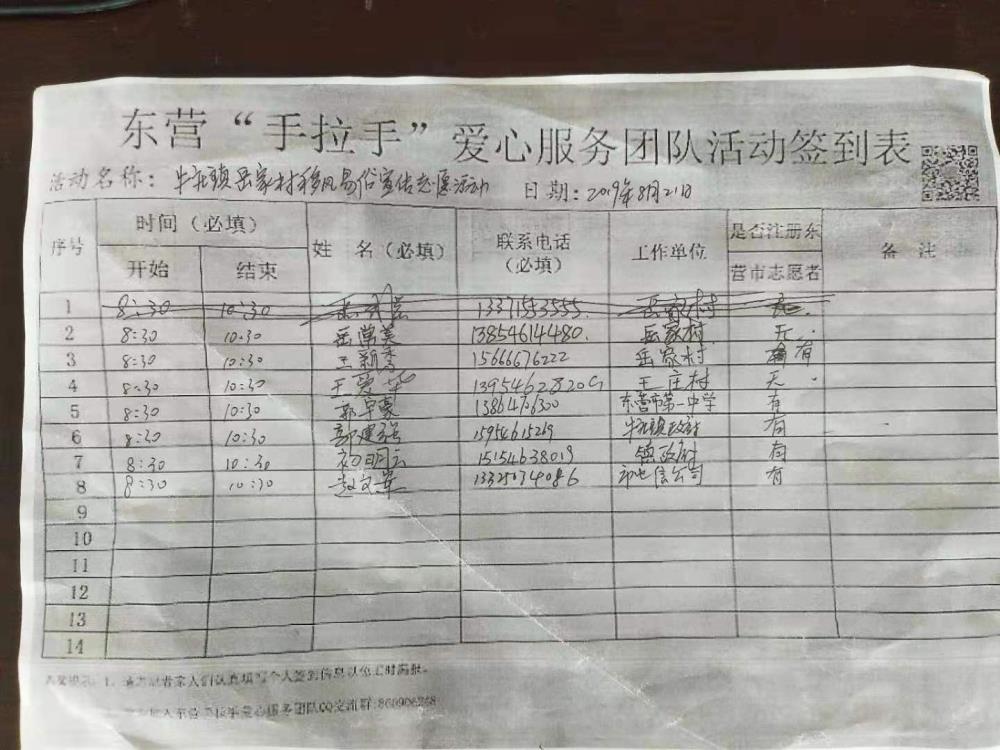 东营“手拉手”爱心服务团队活动签到表
活动名称：牛庄镇岳家村移风易俗宣传志愿活动 日期：2019年8月21日
序号 时间（必填） 姓 名（必填） 联系电话（必填） 工作单位 是否注册东营市志愿者 备 注
开始 结束
1 8:30 10:30 13371553555 岳家村 无
2 8:30 10:30 岳常美 13854614480 岳家村 无
3 8:30 10:30 王颖秀 15666676222 岳家村 有
4 8:30 10:30 王爱华 王庄村 无
5 8:30 10:30 郭宇豪 东营市第一中学 有
6 8:30 10:30 郭建强 15954615269 牛庄镇政府 有
7 8:30 10:30 初明云 15154638019 镇政府 有
8 8:30 10:30 赵文军 13325074086 市电信公司 有
9
10
11
12
13
14
1、请志愿者家人们认真填写个人签到信息以免工时漏报。
加入东营手拉手爱心服务团队QQ交流群:860906268